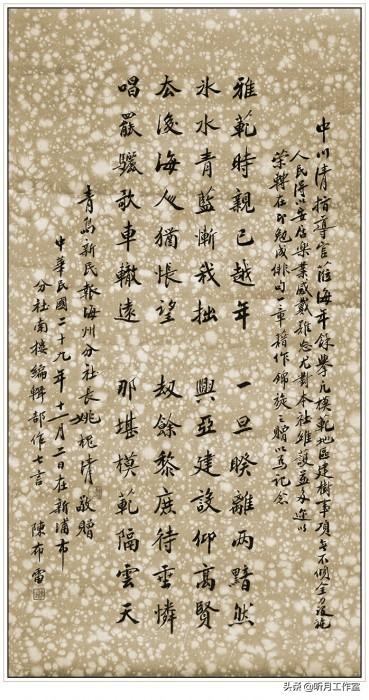 中川清指導官蒞海年餘舉凡模範地區建樹事項無不傾全
人民得以安居樂業感戴難忘尤對本社維護並多
榮轉在即勉成俳句一章藉作錦旋之贈以為記念
雅範時親已越年 一旦暌離兩黯然
氷水青藍慚我拙 興亞建設仰高賢
厺後海人猶悵望 劫餘黎庶待垂憐
唱罷驪歌車轍遠 那堪模範隔雲天
青島新民報海州分社長姚槐清敬贈
中華民國二十九年十一月二日在新浦市
分社南樓編輯部作七言 陳布雷
头条 @听月工作室